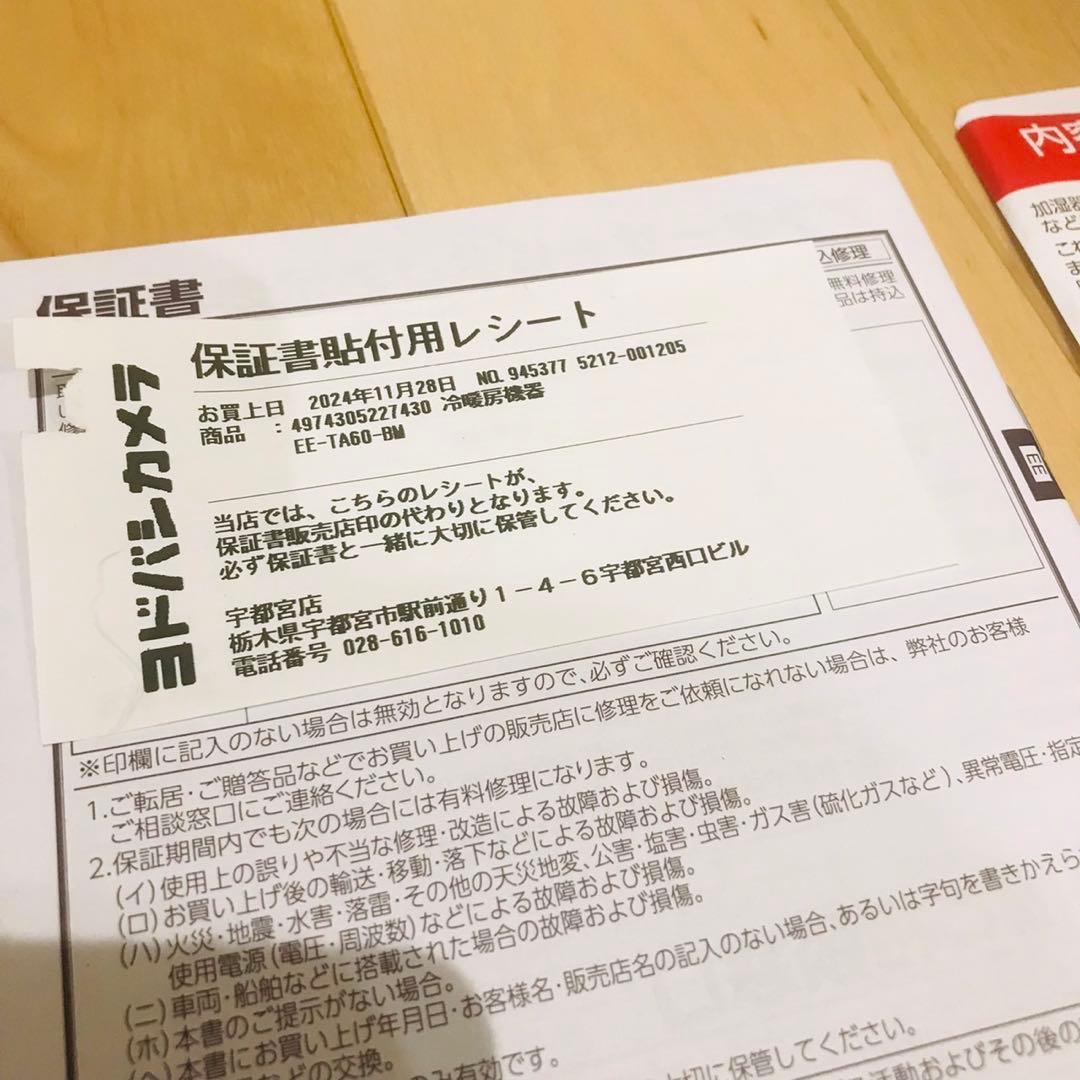 保証書
入修理
無料修理
品は持込
ヨドバシカメラ
保証書貼付用レシート
お買上日 2024年11月28日 NO. 945377 5212-001205
商品 : 4974305227430 冷暖房機器
EE-TA60-BM
当店では、こちらのレシートが、
保証書販売店印の代わりとなります。
必ず保証書と一緒に大切に保管してください。
宇都宮店
栃木県宇都宮市駅前通り1-4-6宇都宮西口ビル
電話番号 028-616-1010
※印欄に記入のない場合は無効となりますので、必ずご確認ください。
1.ご転居・ご贈答品などでお買い上げの販売店に修理をご依頼になれない場合は、弊社のお客様
ご相談窓口にご連絡ください。
2.保証期間内でも次の場合には有料修理になります。
(イ)使用上の誤りや不当な修理・改造による故障および損傷。
(ロ)お買い上げ後の輸送・移動・落下などによる故障および損傷。
(ハ)火災・地震・水害・落雷・その他の天災地変、公害・塩害・虫害・ガス害(硫化ガスなど)、異常電圧・指定
使用電源(電圧・周波数)などによる故障および損傷。
(ニ)車両・船舶などに搭載された場合の故障および損傷。
(ホ)本書のご提示がない場合。
(ヘ)本書にお買い上げ年月日・お客様名・販売店名の記入のない場合、あるいは字句を書きかえら
などの交換。
のみ有効です。
切に保管してください。
活動およびその後の
内容
加湿器
など
これ
ま
EE